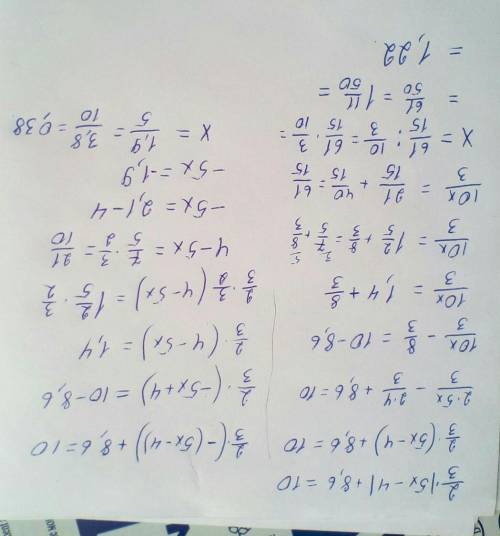 2/3·|5x-4|+8,6=10
2/3·(5x-4)+8,6=10
2·5x/3 - 2·4/3 +8,6=10
10x/3 - 8/3 = 10-8,6
10x/3 = 1,4+8/3
10x/3 = 1 2/5 + 8/3 = 3 7/5 + 5 8/3
10x/3 = 21/15 + 40/15 = 61/15
x = 61/15 : 10/3 = 61/15 · 3/10 =
= 61/50 = 1 11/50 =
= 1,22
2/3·(-(5x-4))+8,6=10
2/3·(-5x+4)=10-8,6
2/3·(4-5x)=1,4
2/3·3/2(4-5x)=1 2/5·3/2
4-5x=7/5·3/2=21/10
-5x=2,1-4
-5x=-1,9
x=1,9/5=3,8/10=0,38